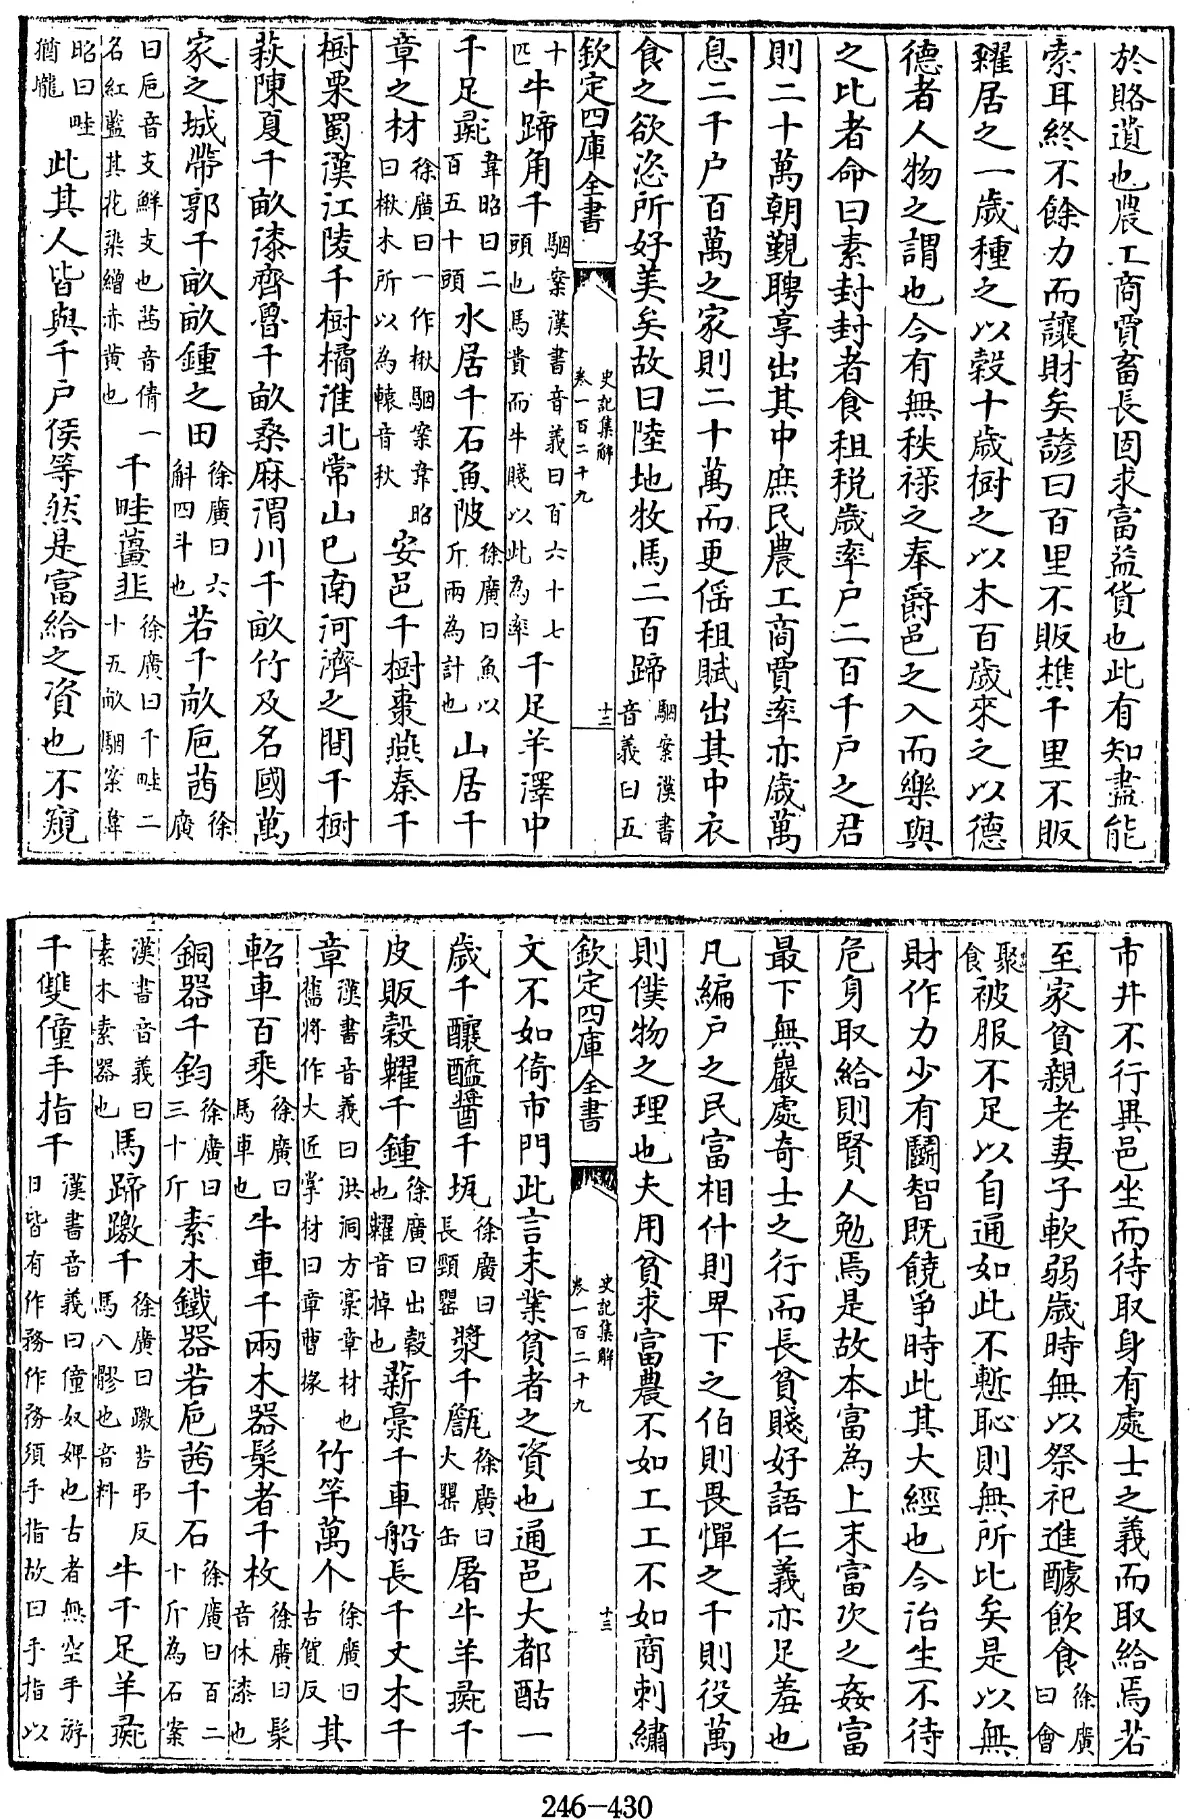 於賂遺也農工商賈畜長固求富益貨也此有知盡能
索耳終不餘力而讓財矣諺曰百里不販樵千里不販
糴居之一歲種之以穀十歲樹之以木百歲來之以德
德者人物之謂也今有無秩祿之奉爵邑之入而樂與
之比者命曰素封封者食租税歲率户二百千户之君
則二十萬朝覲聘享出其中庶民農工商賈率亦歲萬
息二千户百萬之家則二十萬而更徭租賦出其中衣
食之欲恣所好美矣故曰陸地牧馬二百蹄駰案漢書音義曰五
欽定四庫全書 史記集解 卷一百二十九 十二
十匹牛蹄角千駰案漢書音義曰百六十七頭也馬貴而牛賤以此為率千足羊澤中
千足彘韋昭曰二百五十頭水居千石魚陂徐廣曰魚以斤兩為計也山居千
章之材徐廣曰一作楸駰案韋昭曰楸木所以為轅音秋安邑千樹棗燕秦千
樹栗蜀漢江陵千樹橘淮北常山巳南河濟之間千樹
萩陳夏千畝漆齊魯千畝桑麻渭川千畝竹及名國萬
家之城帶郭千畝畝鍾之田徐廣曰六斛四斗也若千畝巵茜徐廣
曰巵音支鮮支也茜音倩一名紅藍其花染繒赤黄也千畦薑韭徐廣曰千畦二十五畝駰案韋
昭曰畦猶隴此其人皆與千户侯等然是富給之資也不窺
市井不行異邑坐而待取身有處士之義而取給焉若
至家貧親老妻子軟弱歲時無以祭祀進醵飲食徐廣曰會
聚食被服不足以自通如此不慙恥則無所比矣是以無
財作力少有鬭智既饒爭時此其大經也今治生不待
危身取給則賢人勉焉是故本富為上末富次之姦富
最下無巖處奇士之行而長貧賤好語仁義亦足羞也
凡編户之民富相什則卑下之伯則畏憚之千則役萬
則僕物之理也夫用貧求富農不如工工不如商刺繡
欽定四庫全書 史記集解 卷一百二十九 十三
文不如倚市門此言末業貧者之資也通邑大都酤一
歲千釀醯醬千瓨徐廣曰長頸罌漿千甔徐廣曰大罌缶屠牛羊彘千
皮販穀糶千鍾徐廣曰出穀也糶音掉也薪稾千車船長千丈木千
章漢書音義曰洪洞方稾章材也舊將作大匠掌材曰章曹掾竹竿萬个徐廣曰古賀反其
軺車百乘徐廣曰馬車也牛車千兩木器髤者千枚徐廣曰髤音休漆也
銅器千鈞徐廣曰三十斤素木鐵器若巵茜千石徐廣曰百二十斤為石案
漢書音義曰素木素器也馬蹄躈千徐廣曰躈苦弔反馬八髎也音料牛千足羊彘
千雙僮手指千漢書音義曰僮奴婢也古者無空手游日皆有作務作務須手指故曰手指以
246-430